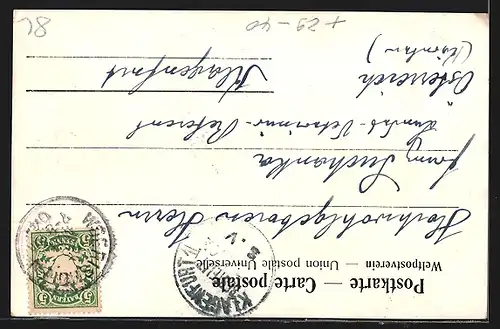 Postkarte — Carte postale
Weltpostverein — Union postale Universelle
Hochwohlgeboren Herrn
Franz Suchanka
Landes-Veterinär-Referent
Klagenfurt
Österreich
(Kärnten)
BAYERN
5 5
KLAGENFURT
+ 29-40